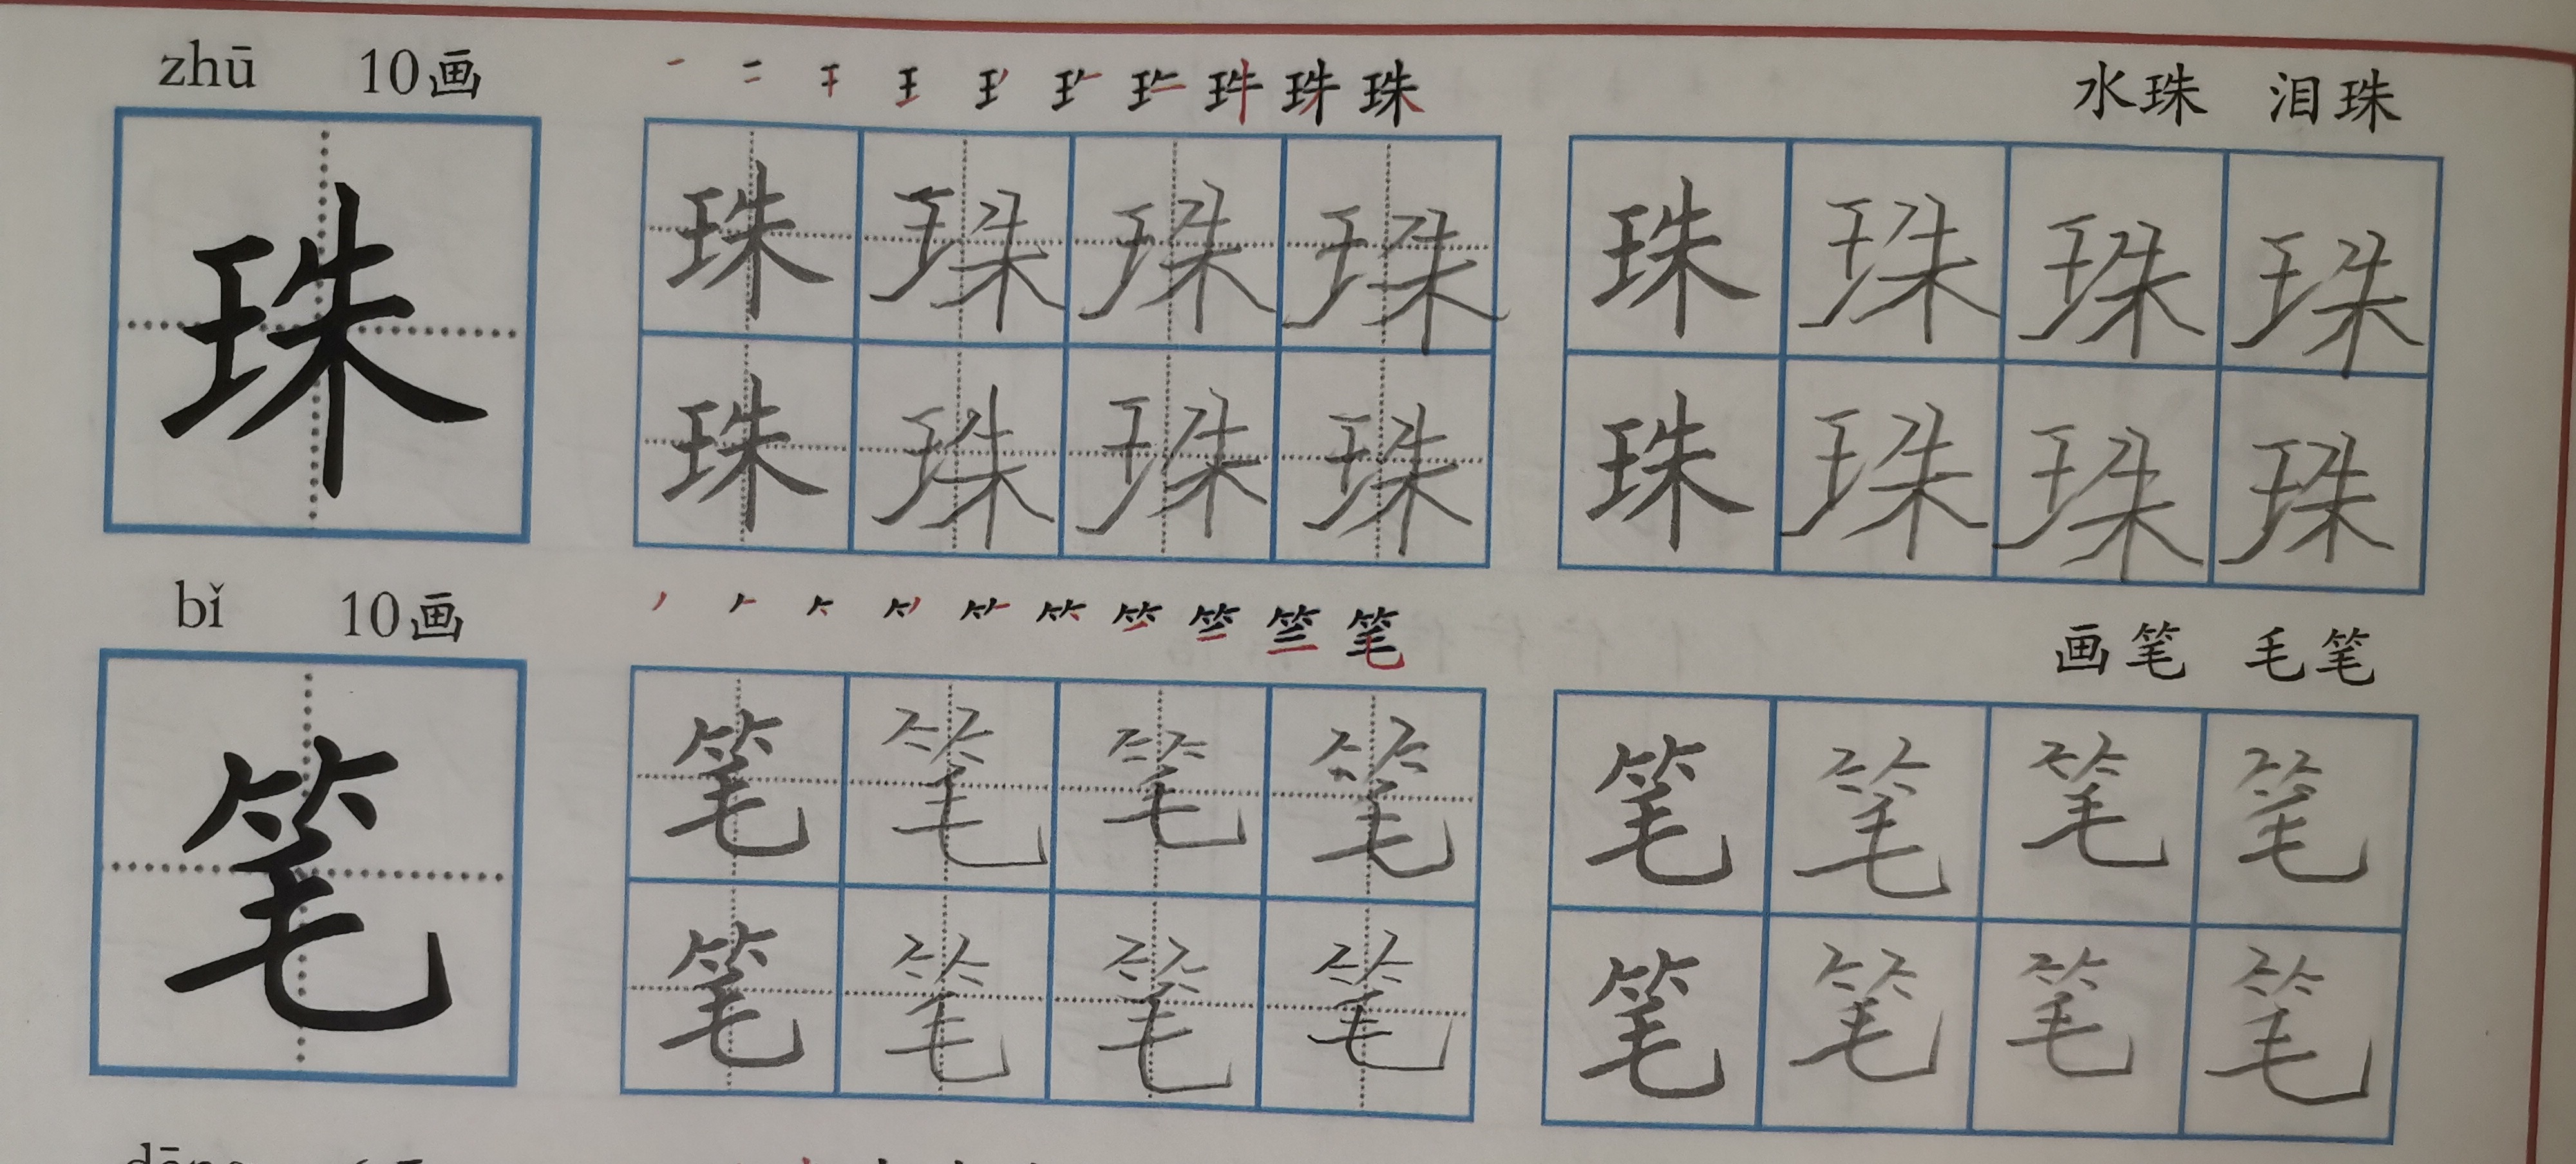 zhū 10画 一 二 干 王 珠 水珠 泪珠
珠 珠 珠 珠 珠 珠 珠 珠 珠
珠 珠 珠 珠 珠 珠 珠 珠
bǐ 10画 笔 画笔 毛笔
笔 笔 笔 笔 笔 笔 笔 笔 笔
笔 笔 笔 笔 笔 笔 笔 笔